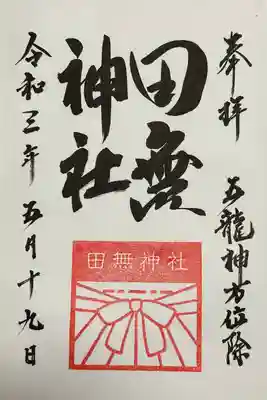 奉拝 五龍神方位除
田無
神社
田無神社
令和三年 五月十九日